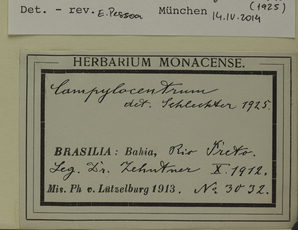 (1925)
Det. - rev. E. Pessoa München 14.IV.2014
HERBARIUM MONACENSE.
Campylocentrum
det. Schlechter 1925.
BRASILIA: Bahia, Rio Preto.
Leg. Dr. Zehntner X. 1912.
Mis. Ph v. Lützelburg 1913. No. 3032.